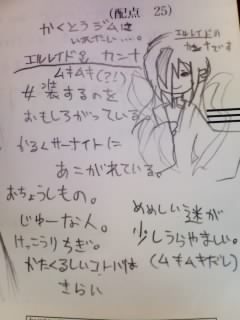 (配点　25)
かくとうジムは
いれたい……。
エルレイド♀ カンナ
ムキムキ(?!)
女装するのを
おもしろがっている。
かるくサーナイトに
あこがれている。
おちょうしもの。
じゆーな人。
けっこうりちぎ。
かたくるしいコトバは
きらい
エルレイドの
カンナです
めめしい迷が
少しうらやましい。
(ムキムキだし)